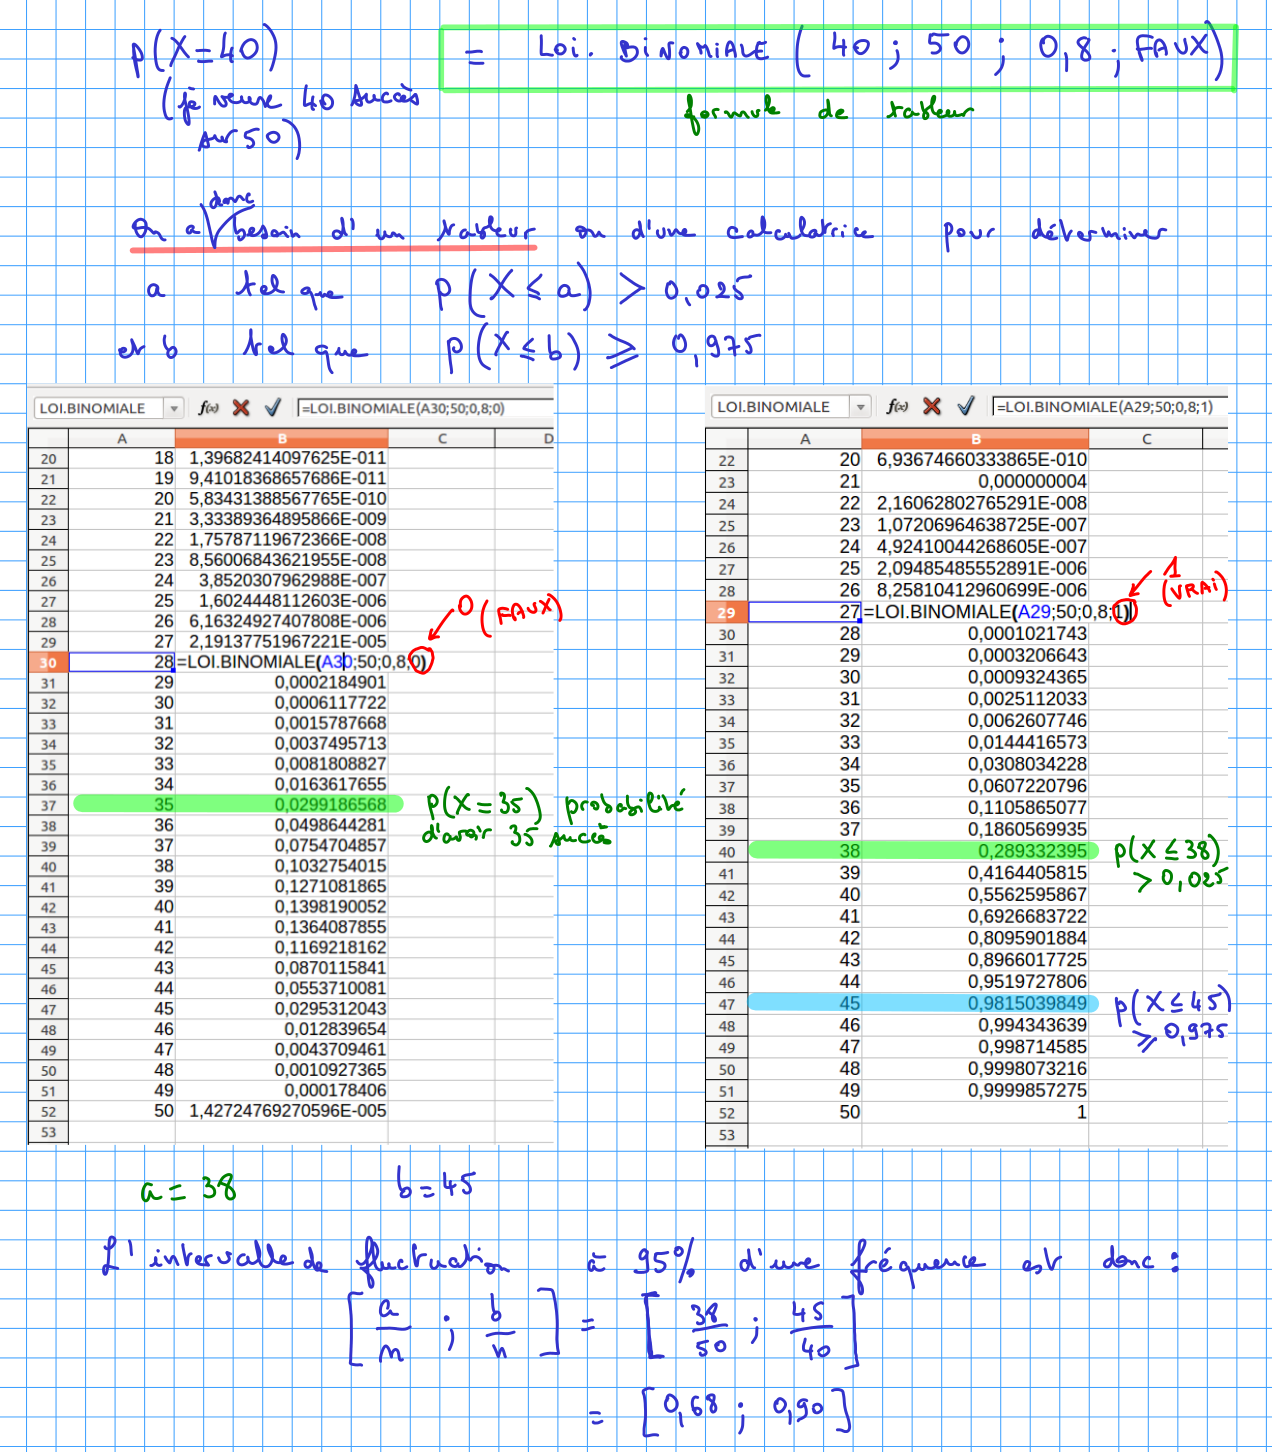 p(X=40) = Loi. BiNOMiALE ( 40 ; 50 ; 0,8 ; FAUX)
(je veux 40 succès
sur 50)
formule de tableur
donc
On a besoin d'un tableur ou d'une calculatrice pour déterminer
a tel que p(X ≤ a) > 0,025
et b tel que p(X ≤ b) ⩾ 0,975
LOI.BINOMIALE f(x) =LOI.BINOMIALE(A30;50;0,8;0)
A B C D
20 18 1,39682414097625E-011
21 19 9,41018368657686E-011
22 20 5,83431388567765E-010
23 21 3,33389364895866E-009
24 22 1,75787119672366E-008
25 23 8,56006843621955E-008
26 24 3,8520307962988E-007
27 25 1,6024448112603E-006
28 26 6,16324927407808E-006
29 27 2,19137751967221E-005
30 28 =LOI.BINOMIALE(A30;50;0,8;0)
31 29 0,0002184901
32 30 0,0006117722
33 31 0,0015787668
34 32 0,0037495713
35 33 0,0081808827
36 34 0,0163617655
37 35 0,0299186568
38 36 0,0498644281
39 37 0,0754704857
40 38 0,1032754015
41 39 0,1271081865
42 40 0,1398190052
43 41 0,1364087855
44 42 0,1169218162
45 43 0,0870115841
46 44 0,0553710081
47 45 0,0295312043
48 46 0,012839654
49 47 0,0043709461
50 48 0,0010927365
51 49 0,000178406
52 50 1,42724769270596E-005
53
0 (FAUX)
p(X=35) probabilité
d'avoir 35 succès
LOI.BINOMIALE f(x) =LOI.BINOMIALE(A29;50;0,8;1)
A B C
22 20 6,93674660333865E-010
23 21 0,000000004
24 22 2,16062802765291E-008
25 23 1,07206964638725E-007
26 24 4,92410044268605E-007
27 25 2,09485485552891E-006
28 26 8,25810412960699E-006
29 27 =LOI.BINOMIALE(A29;50;0,8;1)
30 28 0,0001021743
31 29 0,0003206643
32 30 0,0009324365
33 31 0,0025112033
34 32 0,0062607746
35 33 0,0144416573
36 34 0,0308034228
37 35 0,0607220796
38 36 0,1105865077
39 37 0,1860569935
40 38 0,289332395
41 39 0,4164405815
42 40 0,5562595867
43 41 0,6926683722
44 42 0,8095901884
45 43 0,8966017725
46 44 0,9519727806
47 45 0,9815039849
48 46 0,994343639
49 47 0,998714585
50 48 0,9998073216
51 49 0,9999857275
52 50 1
53
1
(VRAi)
p(X ≤ 38)
> 0,025
p(X ≤ 45)
⩾ 0,975
a = 38 b = 45
L'intervalle de fluctuation à 95% d'une fréquence est donc :
[a/n ; b/n] = [38/50 ; 45/40]
= [0,68 ; 0,90]